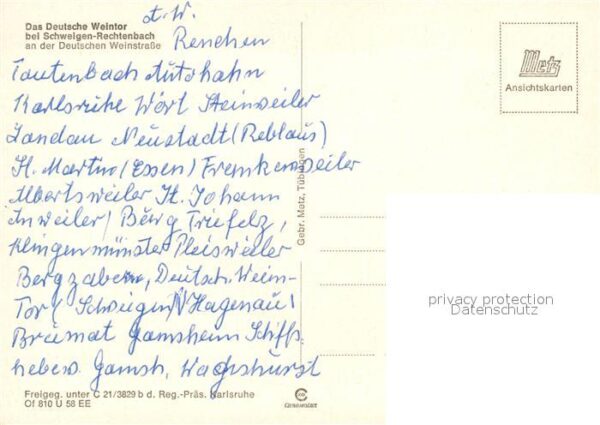 Das Deutsche Weintor
bei Schweigen-Rechtenbach
an der Deutschen Weinstraße
Renchen
Tautenbach Autobahn
Karlsruhe Wört Steinweiler
Landau Neustadt (Reblaus)
St. Martin (Essen) Frenkenweiler
Albertsweiler St. Johann
Inweiler / Burg Triefelz,
Klingenmünster Pleisweiler
Bergzabern, Deutsch. Wein-
Tor ( Schweigen) Hagenau
Brumat Gamsheim Schiffs
hebew. Gamsh, Wagshurst
Gebr. Metz, Tübingen
Metz
Ansichtskarten
privacy protection
Datenschutz
Freigeg. unter C 21/3829 b d. Reg.-Präs. Karlsruhe
Of 810 U 58 EE